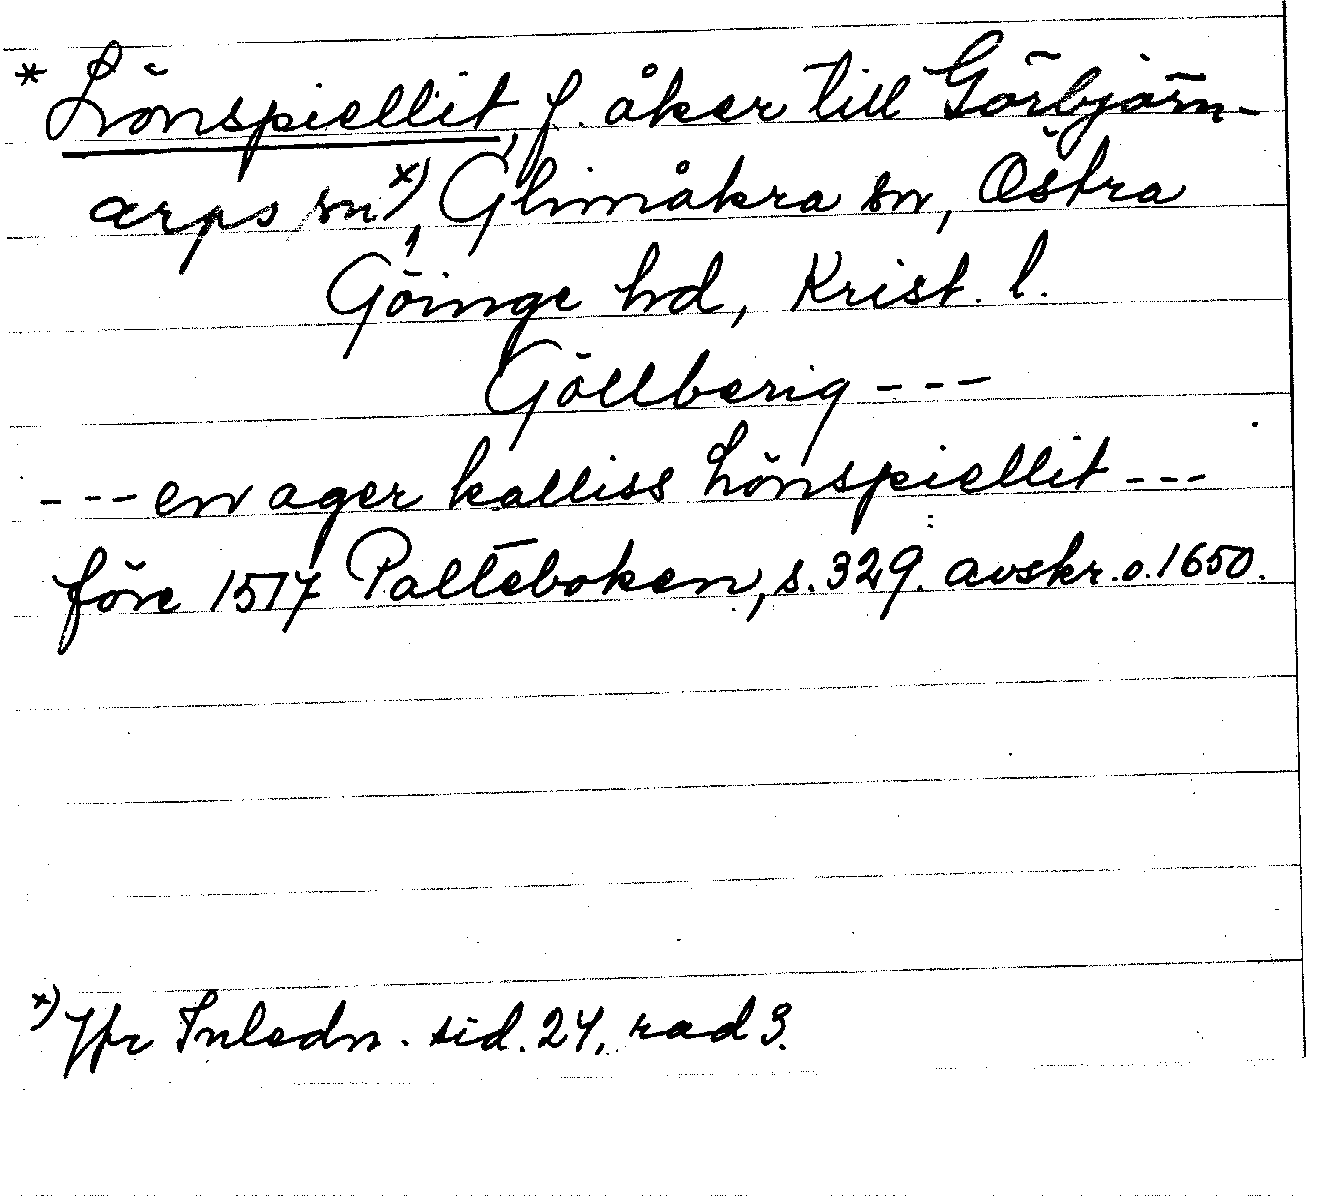 * Lönspiellit, f. åker till Görbjörn-
arps sn x), Glimåkra sn, Östra
Göinge hd, Krist. l.
Göllberig ---
--- en ager kalliss Lönspiellit ---
före 1517 Palteboken, s. 329. avskr. o. 1650.
x) Jfr Inledn. sid. 24, rad 3.